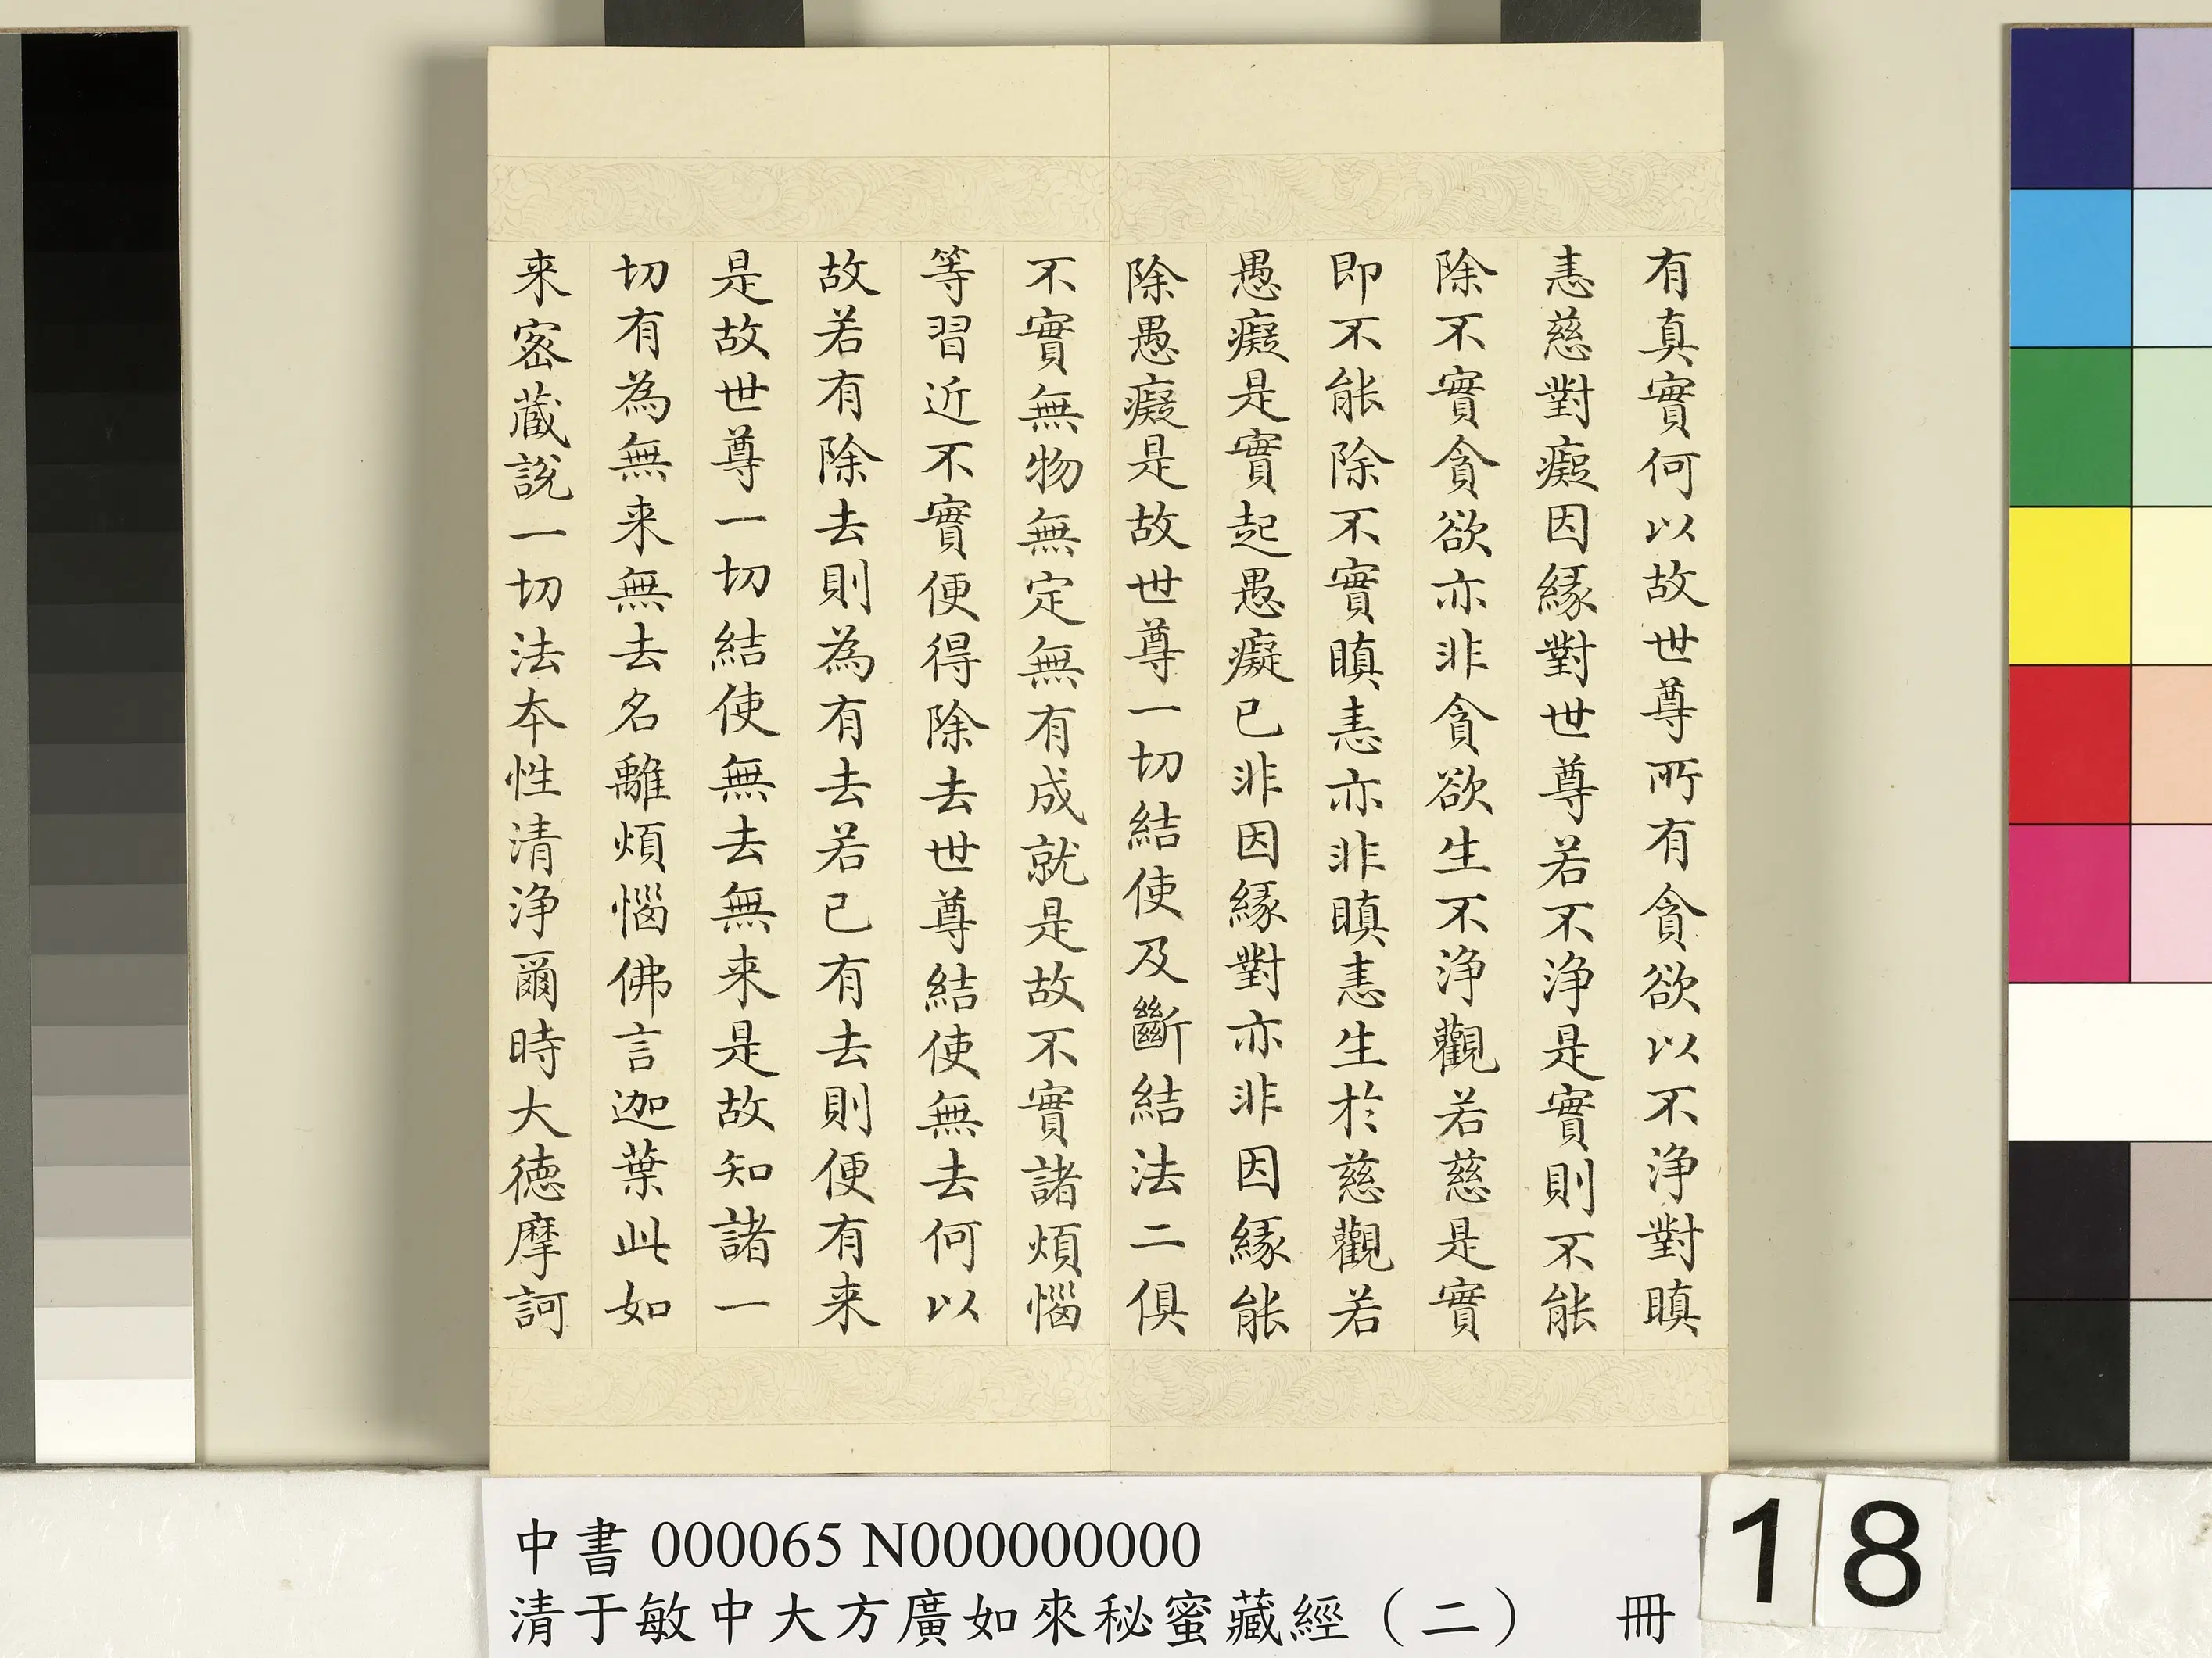 有真實何以故世尊所有貪欲以不淨對瞋
恚慈對癡因緣對世尊若不淨是實則不能
除不實貪欲亦非貪欲生不淨觀若慈是實
即不能除不實瞋恚亦非瞋恚生於慈觀若
愚癡是實起愚癡已非因緣對亦非因緣能
除愚癡是故世尊一切結使及斷結法二俱
不實無物無定無有成就是故不實諸煩惱
等習近不實便得除去世尊結使無去何以
故若有除去則為有去若已有去則便有来
是故世尊一切結使無去無来是故知諸一
切有為無来無去名離煩惱佛言迦葉此如
来密藏說一切法本性清淨爾時大德摩訶
中書 000065 N000000000
清于敏中大方廣如來秘蜜藏經（二） 冊
18